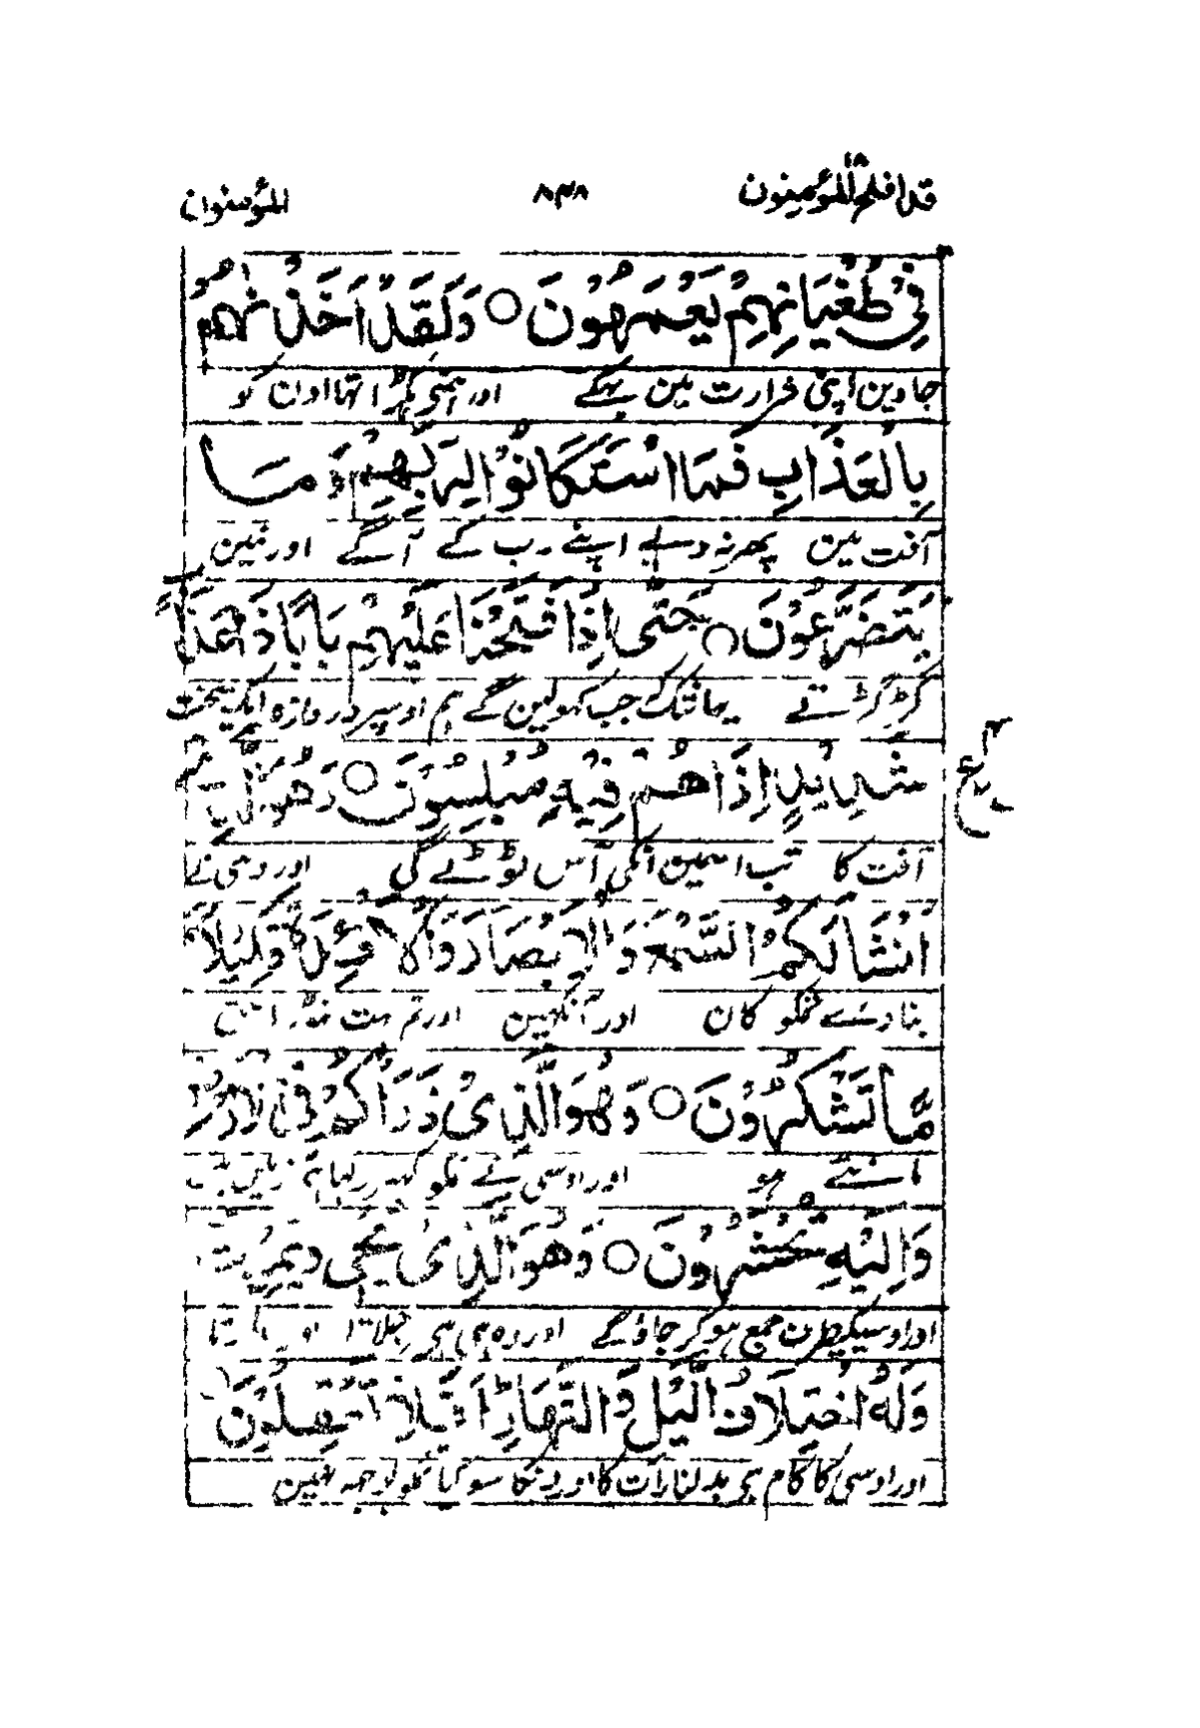 قد افلح ۱۸ المؤمنون
۸۴۸
المؤمنون
فِىْ طُغْيَانِهِمْ يَعْمَهُوْنَ ○ وَلَقَدْ اَخَذْنٰهُمْ
جاوین اپنی شرارت مین بہکے اور ہمنے پکڑا تہا اون کو
بِالْعَذَابِ فَمَا اسْتَكَانُوْا لِرَبِّهِمْ وَمَا
آفت مین پھر نہ دبے اپنے رب کے آگے اور نہین
يَتَضَرَّعُوْنَ ○ حَتّٰى اِذَا فَتَحْنَا عَلَيْهِمْ بَابًا ذَا عَذَابٍ
گڑگڑتے یہانتک کہ جب کھولین گے ہم اوسپر دروازہ ایک سخت
شَدِيْدٍ اِذَا هُمْ فِيْهِ مُبْلِسُوْنَ ○ وَهُوَ الَّذِىْ
ع
آفت کا تب اسمین انکی آس ٹوٹے گی اور وہی نے
اَنْشَاَ لَكُمُ السَّمْعَ وَالْاَبْصَارَ وَالْاَفْئِدَةَ قَلِيْلًا
بنا دئے تمکو کان اور آنکہین اور تم بہت
مَّا تَشْكُرُوْنَ ○ وَهُوَ الَّذِىْ ذَرَاَكُمْ فِى الْاَرْضِ
مانتے ہو اور اوسی نے تمکو کہیر رکہا ہے زمین
وَاِلَيْهِ تُحْشَرُوْنَ ○ وَهُوَ الَّذِىْ يُحْىٖ وَيُمِيْتُ
اور اوسیکیطرف جمع ہو کر جاؤگے اور وہ ہی ہے جلاتا اور مارتا
وَلَهُ اخْتِلَافُ الَّيْلِ وَالنَّهَارِ اَفَلَا تَعْقِلُوْنَ
اور اوسی کا کام ہے بدلنا رات کا اور دن کا سو کیا تمکو بوجہ نہین